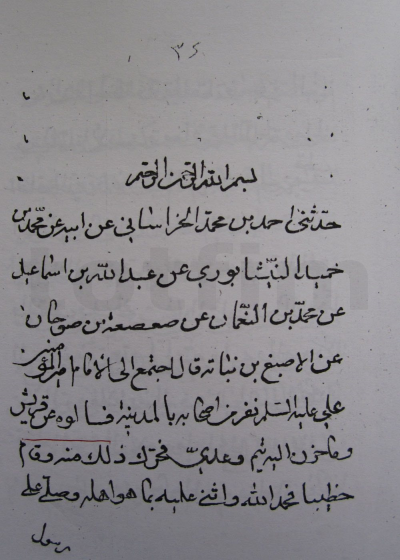 ٣٤
بسم الله الرحمن الرحيم
حدثني احمد بن محمد الخراساني عن ابيه عن محمد بن
حميد النيشابوري عن عبد الله بن اسماعيل
عن محمد بن النعمان عن صعصعة بن صوحان
عن الاصبغ بن نباته قال اجتمع الى الامام امير المؤمنين
علي عليه السلم نفر من اصحابه بالمدينة فسالوه عن قريش
وماحزن اليه تيم وعدي فحرك ذلك منه وقام
خطيبا فحمد الله واثنى عليه بما هو اهله وصلى على
رسول